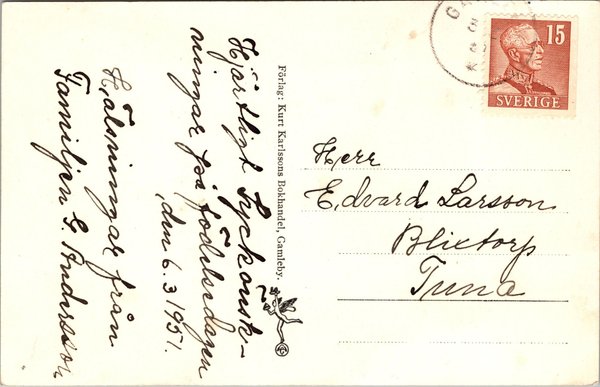 Hjärtligt Lyckönsk-
ningar på födelsedagen
den 6.3 1951.
Hälsningar från
Familjen G. Andersson
Förlag: Kurt Karlssons Bokhandel, Gamleby.
15
SVERIGE
Herr
Edvard Larsson
Blixtorp
Tuna